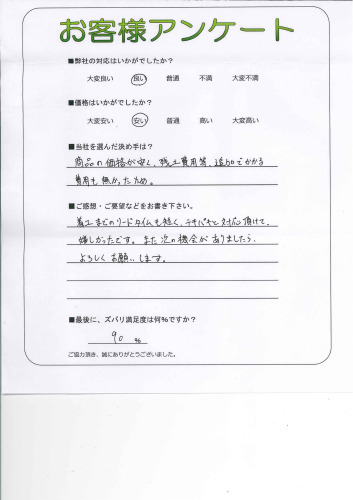 お客様アンケート
■弊社の対応はいかがでしたか?
大変良い 良い 普通 不満 大変不満
■価格はいかがでしたか?
大変安い 安い 普通 高い 大変高い
■当社を選んだ決め手は?
商品の価格が安く、残土費用等、追加でかかる
費用も無かったため。
■ご感想・ご要望などをお書き下さい。
着工までのリードタイムも短く、テキパキと対応頂けて、
嬉しかったです。また次の機会がありましたら、
よろしくお願いします。
■最後に、ズバリ満足度は何%ですか?
90 %
ご協力頂き、誠にありがとうございました。